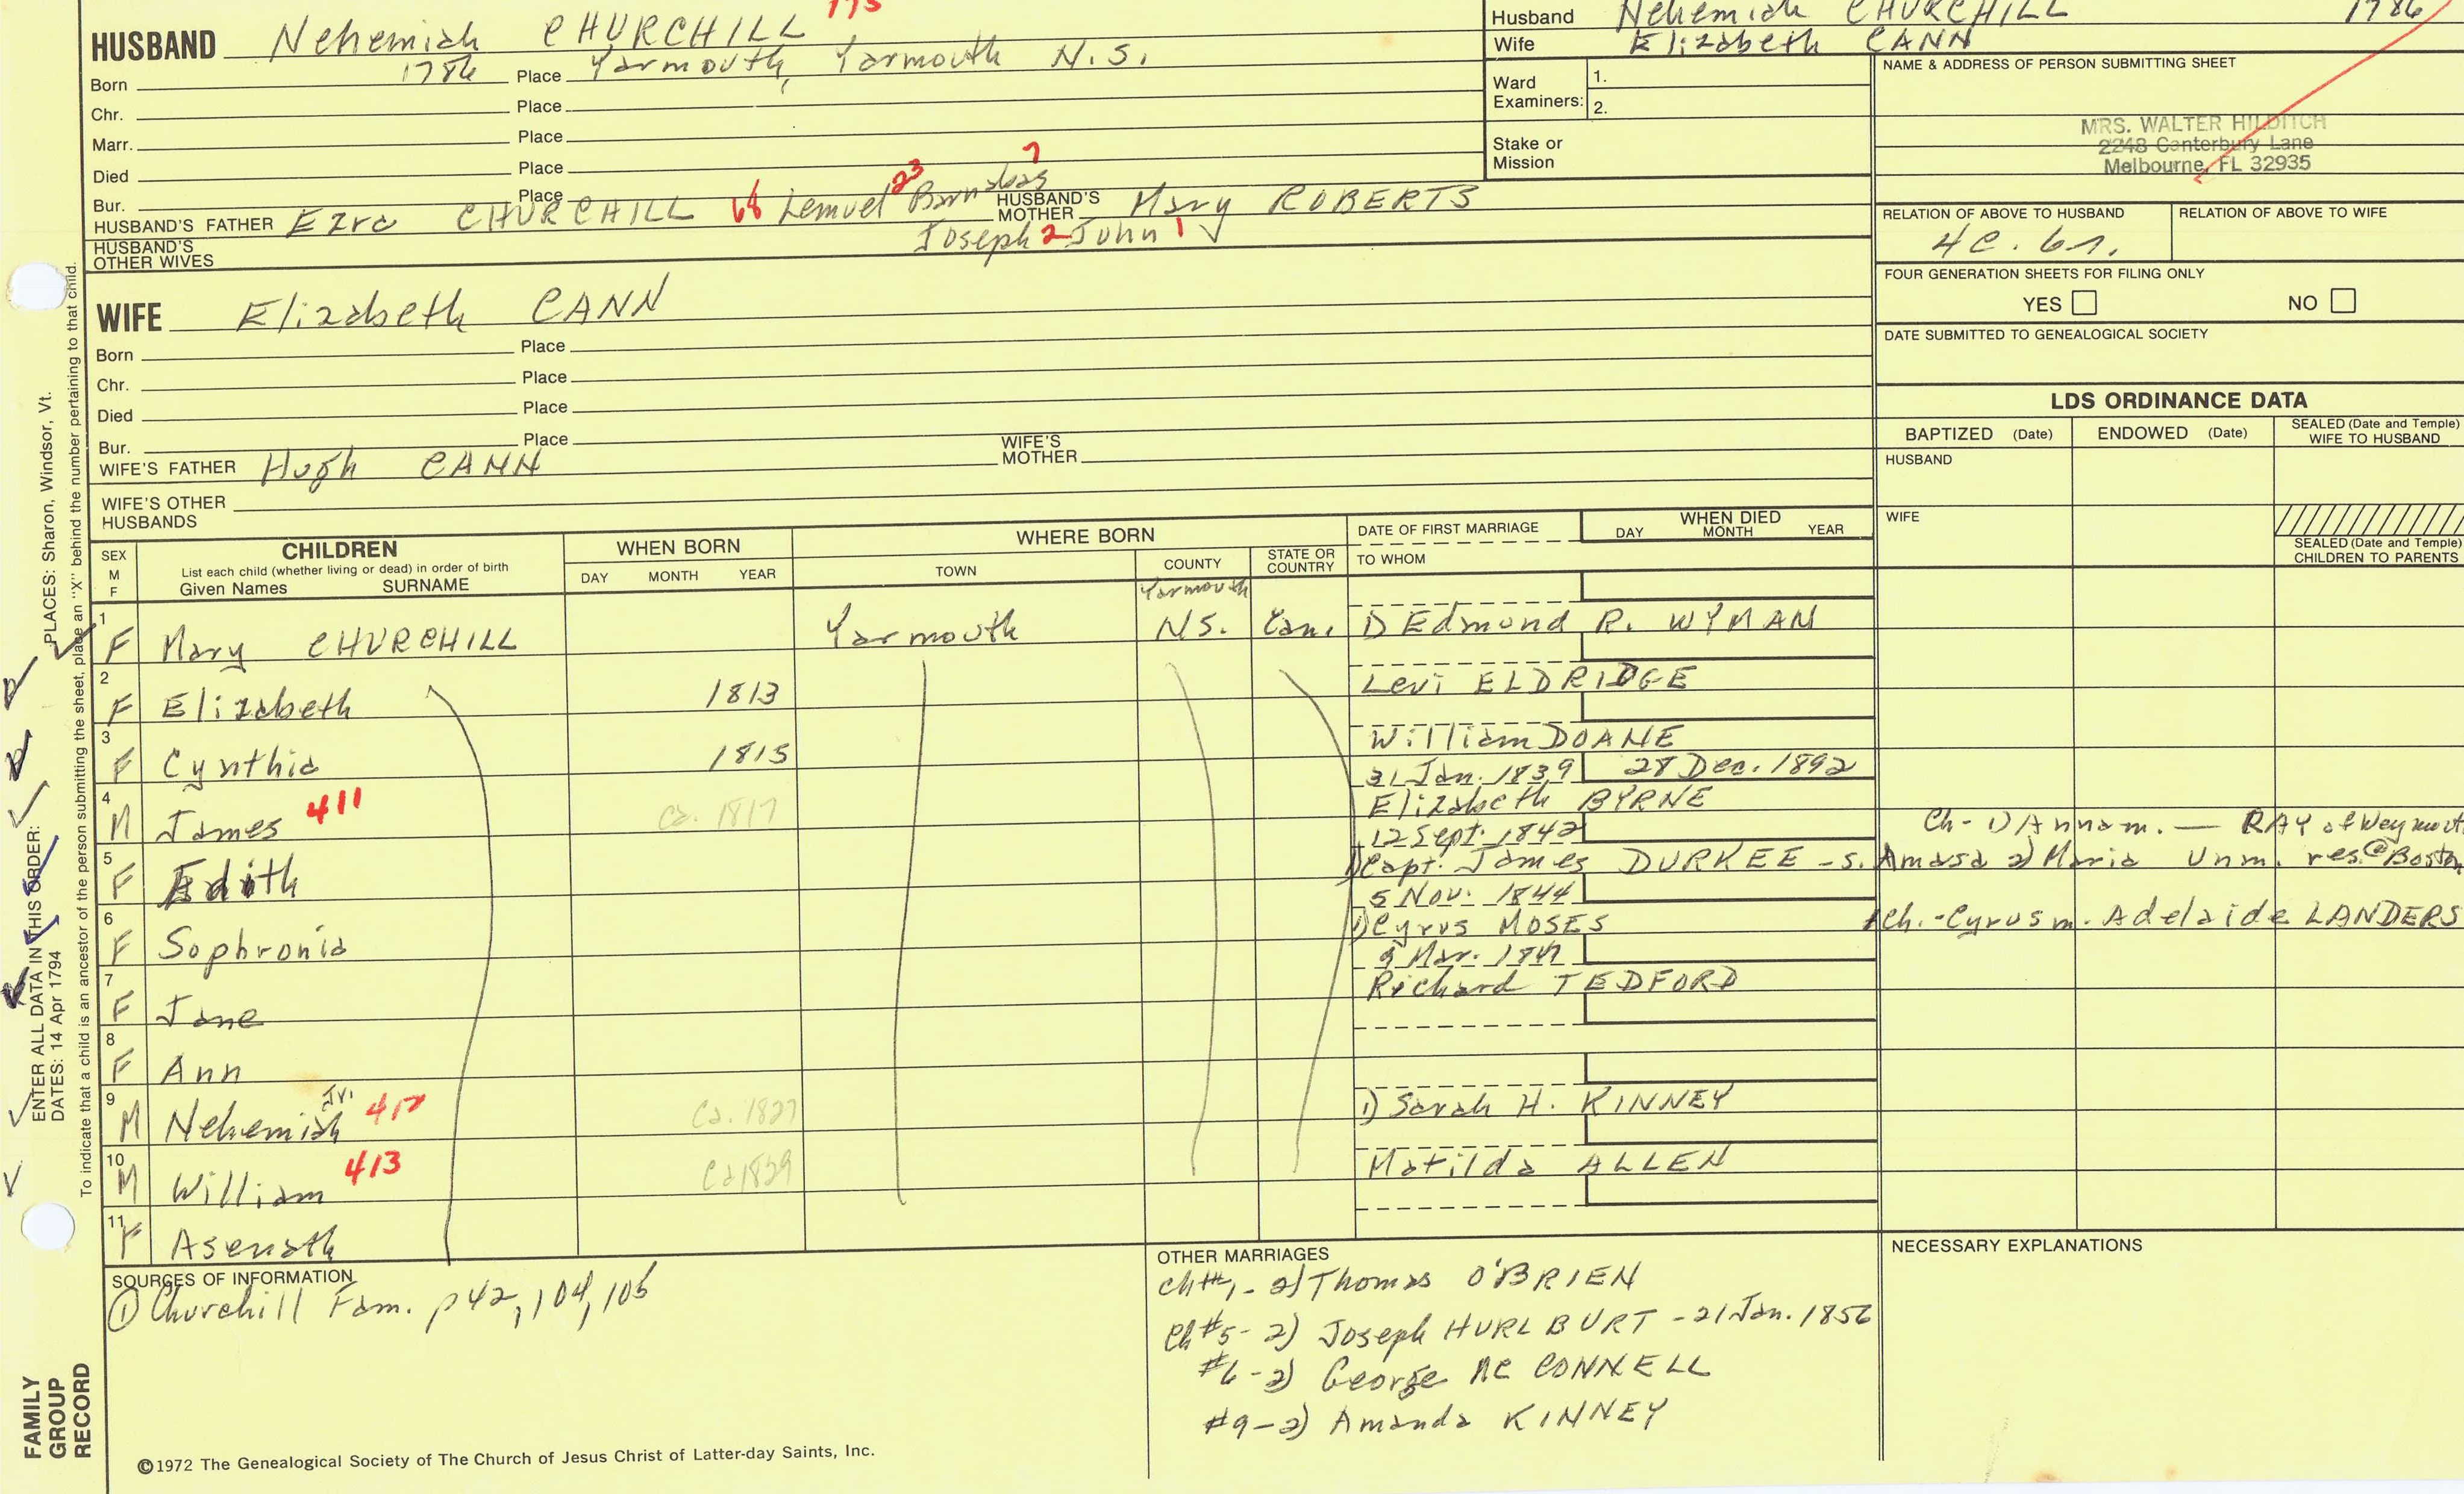 HUSBAND Nehemiah CHURCHILL 175
Born 1786 Place Yarmouth, Yarmouth N.S.
Chr. Place
Marr. Place
Died Place
Bur. Place
HUSBAND'S FATHER Ezra CHURCHILL 68 Lemuel 23 Barnabas 7 HUSBAND'S MOTHER Mary ROBERTS
Joseph 2 John 1
HUSBAND'S OTHER WIVES
Husband Nehemiah CHURCHILL 1786
Wife Elizabeth CANN
Ward Examiners: 1.
2.
Stake or Mission
NAME & ADDRESS OF PERSON SUBMITTING SHEET
MRS. WALTER HILDITCH
2248 Canterbury Lane
Melbourne, FL 32935
RELATION OF ABOVE TO HUSBAND RELATION OF ABOVE TO WIFE
4C. 6r.
FOUR GENERATION SHEETS FOR FILING ONLY
YES NO
DATE SUBMITTED TO GENEALOGICAL SOCIETY
WIFE Elizabeth CANN
Born Place
Chr. Place
Died Place
Bur. Place
WIFE'S FATHER Hugh CANN WIFE'S MOTHER
WIFE'S OTHER HUSBANDS
LDS ORDINANCE DATA
BAPTIZED (Date) ENDOWED (Date) SEALED (Date and Temple) WIFE TO HUSBAND
HUSBAND
WIFE
SEALED (Date and Temple) CHILDREN TO PARENTS
SEX M F CHILDREN WHEN BORN WHERE BORN DATE OF FIRST MARRIAGE WHEN DIED
List each child (whether living or dead) in order of birth
Given Names SURNAME DAY MONTH YEAR TOWN COUNTY STATE OR COUNTRY TO WHOM DAY MONTH YEAR
Yarmouth
1 F Mary CHURCHILL Yarmouth N.S. Can. 1) Edmond R. WYMAN
2 F Elizabeth 1813 Levi ELDRIDGE
3 F Cynthia 1815 William DOANE
31 Jan. 1839 28 Dec. 1892
4 M James 411 Ca. 1817 Elizabeth BYRNE
Ch- 1) Anna m. — RAY of Weymout
12 Sept. 1842
5 F Edith 1) Capt. James DURKEE - s. Amasa 2) Maria Unm. res. @ Boston
5 Nov. 1844
6 F Sophronia 1) Cyrus MOSES 1 Ch. - Cyrus m. Adelaide LANDERS
9 Mar. 1847
7 F Jane Richard TEDFORD
8 F Ann
9 M Nehemiah Jr. 412 Ca. 1827 1) Sarah H. KINNEY
10 M William 413 Ca 1829 Matilda ALLEN
11 F Asenath
SOURCES OF INFORMATION
① Churchill Fam. p 42, 104, 105
OTHER MARRIAGES
Ch#1 - 2) Thomas O'BRIEN
Ch#5 - 2) Joseph HURLBURT - 21 Jan. 1856
#6 - 2) George MC CONNELL
#9 - 2) Amanda KINNEY
NECESSARY EXPLANATIONS
©1972 The Genealogical Society of The Church of Jesus Christ of Latter-day Saints, Inc.
FAMILY GROUP RECORD
ENTER ALL DATA IN THIS ORDER: PLACES: Sharon, Windsor, Vt.
DATES: 14 Apr 1794
To indicate that a child is an ancestor of the person submitting the sheet, place an "X" behind the number pertaining to that child.